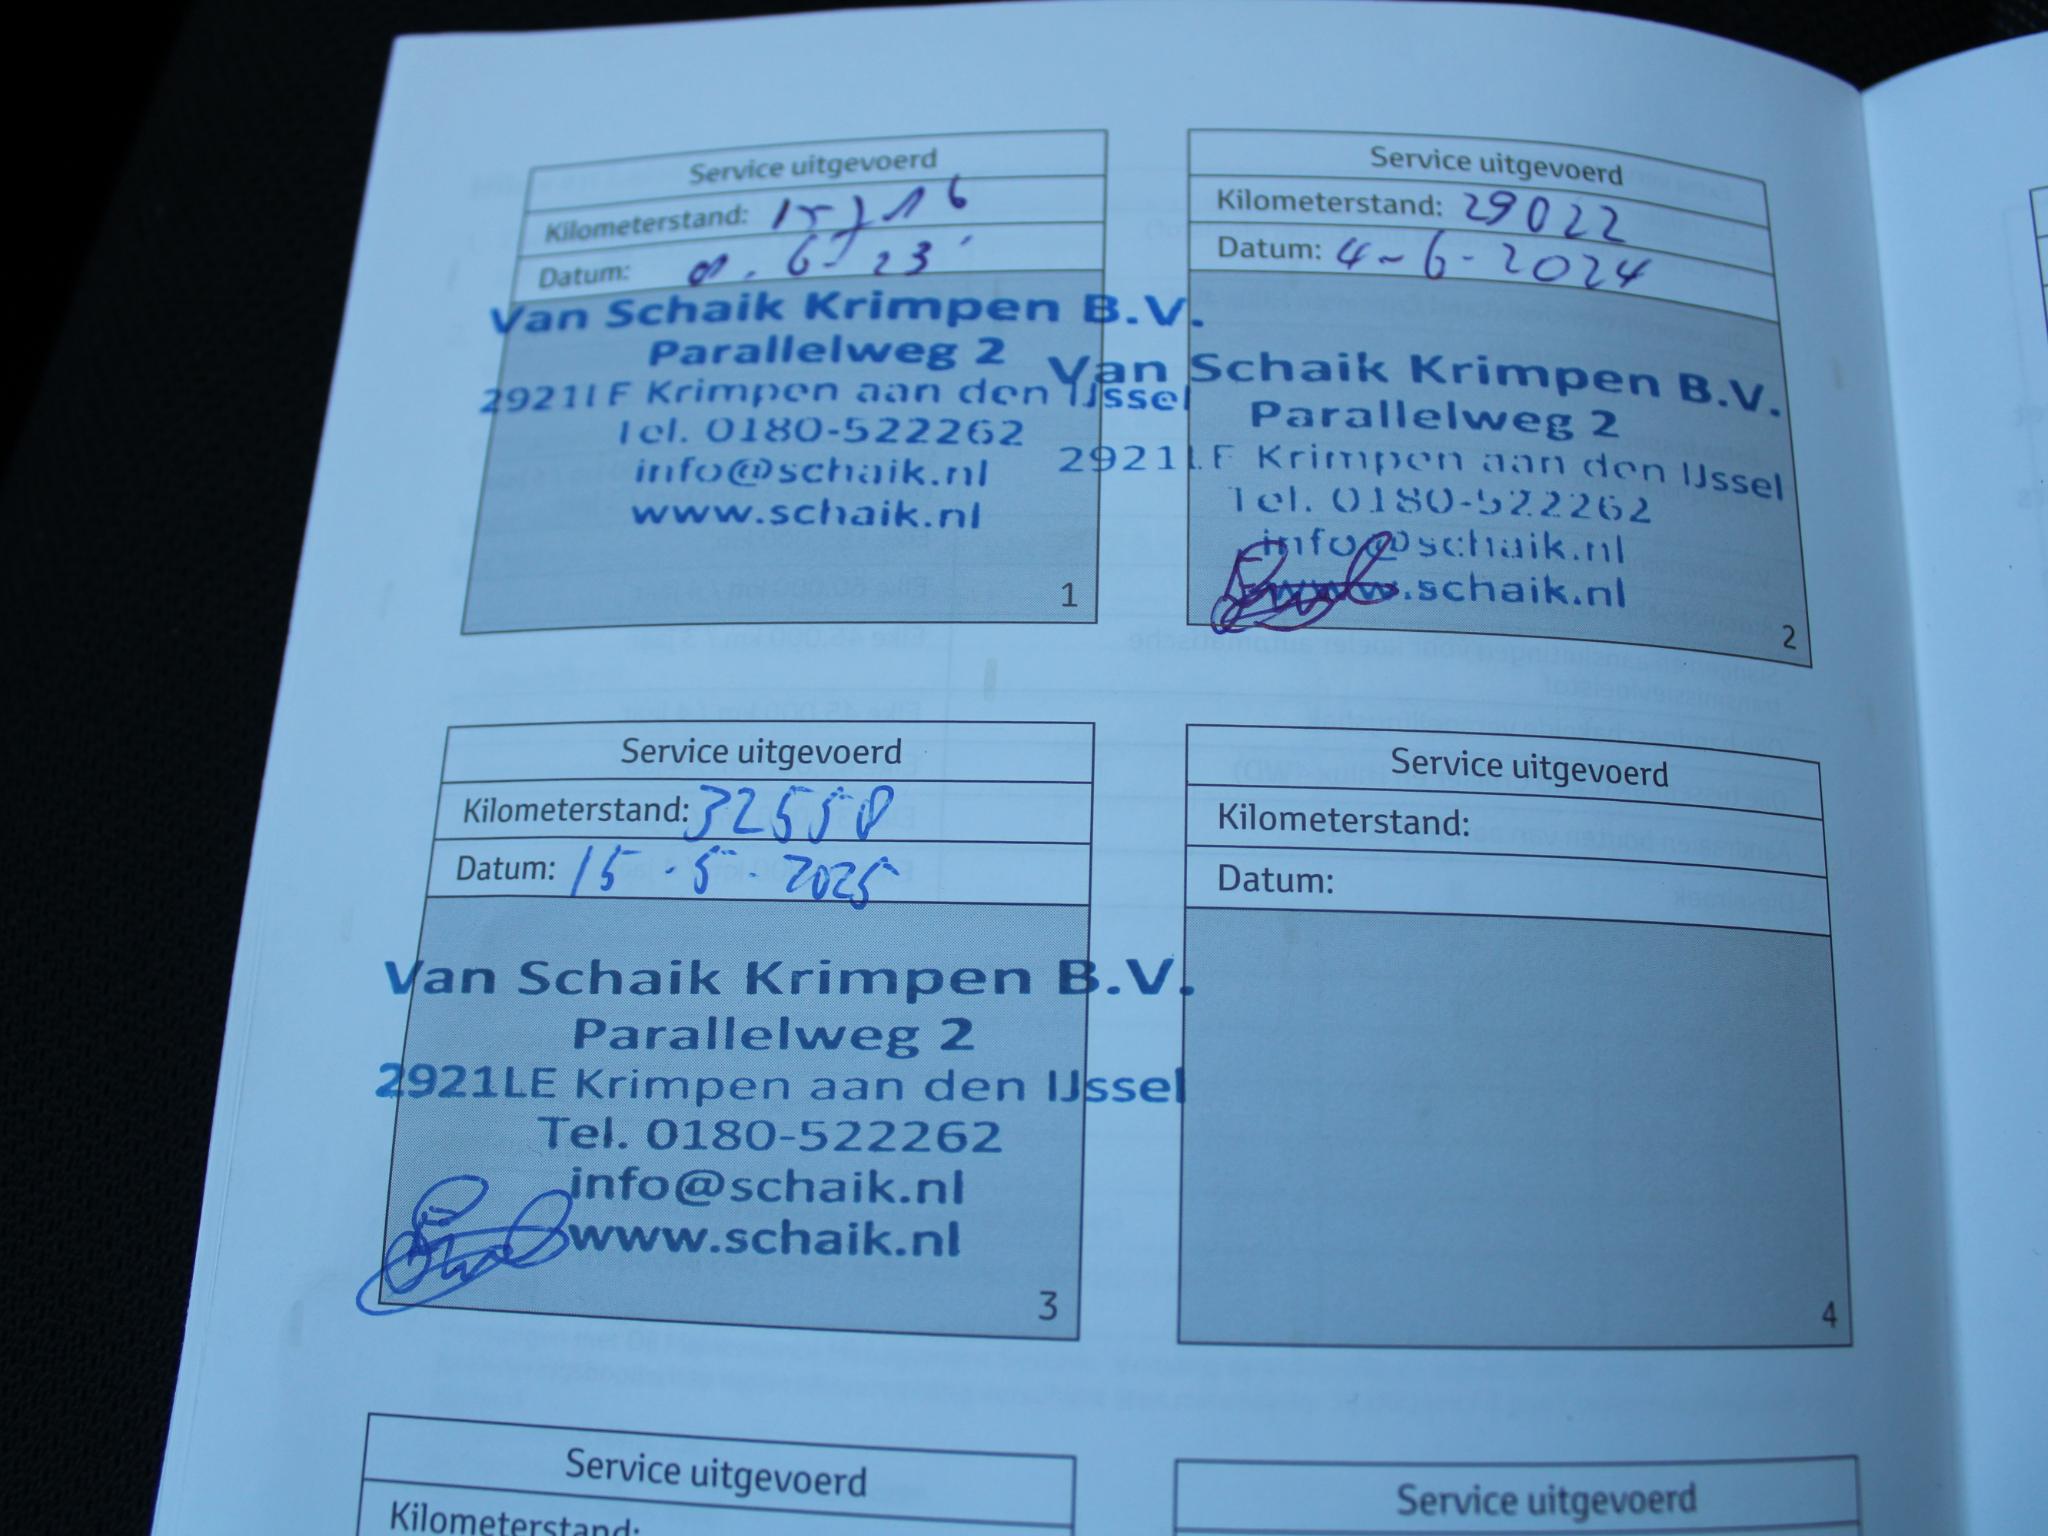 Service uitgevoerd
Kilometerstand:
Datum:
Van Schaik Krimpen B.V.
Parallelweg 2
2921LF Krimpen aan den IJssel
Tel. 0180-522262
info@schaik.nl
www.schaik.nl
1
Service uitgevoerd
Kilometerstand: 29022
Datum: 4-6-2024
Van Schaik Krimpen B.V.
Parallelweg 2
2921LF Krimpen aan den IJssel
Tel. 0180-522262
info@schaik.nl
www.schaik.nl
2
Service uitgevoerd
Kilometerstand: 32558
Datum: 15-5-2025
Van Schaik Krimpen B.V.
Parallelweg 2
2921LE Krimpen aan den IJssel
Tel. 0180-522262
info@schaik.nl
www.schaik.nl
3
Service uitgevoerd
Kilometerstand:
Datum:
4
Service uitgevoerd
Kilometerstand:
Service uitgevoerd